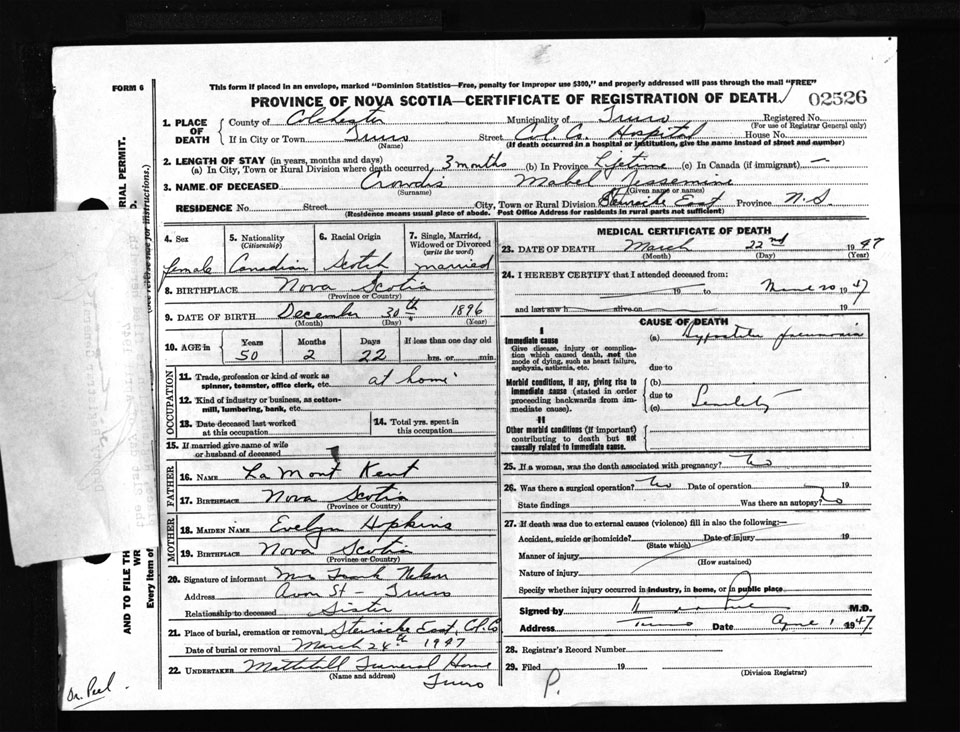 FORM 6
This form if placed in an envelope, marked "Dominion Statistics—Free, penalty for improper use $300," and properly addressed will pass through the mail "FREE"
PROVINCE OF NOVA SCOTIA—CERTIFICATE OF REGISTRATION OF DEATH 02526
1. PLACE OF DEATH County of Colchester Municipality of Truro Registered No.
(For use of Registrar General only)
If in City or Town Truro Street Col. Co. Hospital House No.
(Name) (If death occurred in a hospital or institution, give the name instead of street and number)
2. LENGTH OF STAY (in years, months and days)
(a) In City, Town or Rural Division where death occurred 3 months (b) In Province Lifetime (c) In Canada (if immigrant) —
3. NAME OF DECEASED Crowdis Mabel Jessemine
(Surname) (Given name or names)
RESIDENCE No. Street City, Town or Rural Division East Province N.S.
(Residence means usual place of abode. Post Office Address for residents in rural parts not sufficient)
4. Sex female
5. Nationality (Citizenship) Canadian
6. Racial Origin Scotch
7. Single, Married, Widowed or Divorced (write the word) married
8. BIRTHPLACE Nova Scotia
(Province or Country)
9. DATE OF BIRTH December 30th 1896
(Month) (Day) (Year)
10. AGE in Years Months Days If less than one day old
50 2 22 hrs. or min.
OCCUPATION
11. Trade, profession or kind of work as spinner, teamster, office clerk, etc. at home
12. Kind of industry or business, as cotton-mill, lumbering, bank, etc.
13. Date deceased last worked at this occupation
14. Total yrs. spent in this occupation
15. If married give name of wife or husband of deceased
FATHER
16. NAME La Mont Kent
17. BIRTHPLACE Nova Scotia
(Province or Country)
MOTHER
18. MAIDEN NAME Evelyn Hopkins
19. BIRTHPLACE Nova Scotia
(Province or Country)
20. Signature of informant Mrs Frank Nelson
Address Avon St — Truro
Relationship to deceased Sister
21. Place of burial, cremation or removal East, Col. Co
Date of burial or removal March 24th 1947
22. UNDERTAKER Funeral Home
(Name and address) Truro
MEDICAL CERTIFICATE OF DEATH
23. DATE OF DEATH March 22nd 1947
(Month) (Day) (Year)
24. I HEREBY CERTIFY that I attended deceased from:
19 to 20 1947
and last saw h alive on 19
CAUSE OF DEATH
I
Immediate cause
Give disease, injury or complication which caused death, not the mode of dying, such as heart failure, asphyxia, asthenia, etc.
(a) Hypostatic pneumonia
due to
Morbid conditions, if any, giving rise to immediate cause (stated in order proceeding backwards from immediate cause).
(b)
due to
(c) Senility
II
Other morbid conditions (if important) contributing to death but not causally related to immediate cause.
25. If a woman, was the death associated with pregnancy? No
26. Was there a surgical operation? No Date of operation
State findings Was there an autopsy? No
27. If death was due to external causes (violence) fill in also the following:—
Accident, suicide or homicide? Date of injury 19
(State which)
Manner of injury
(How sustained)
Nature of injury
Specify whether injury occurred in industry, in home, or in public place
Signed by M.D.
Address Truro Date April 1 1947
28. Registrar's Record Number
29. Filed 19
(Division Registrar)
P.
Dr. Peel.
RIAL PERMIT.
(See reverse side for instructions.)
AND TO FILE TH
WR
Every item of